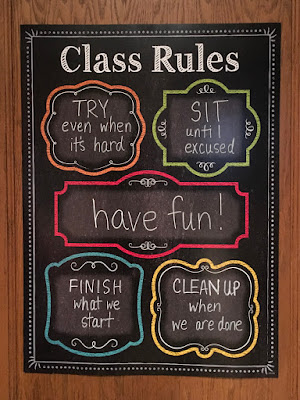 Class Rules
TRY
even when
it's hard
SIT
until I
excused
have fun!
FINISH
what we
start
CLEAN UP
when
we are done